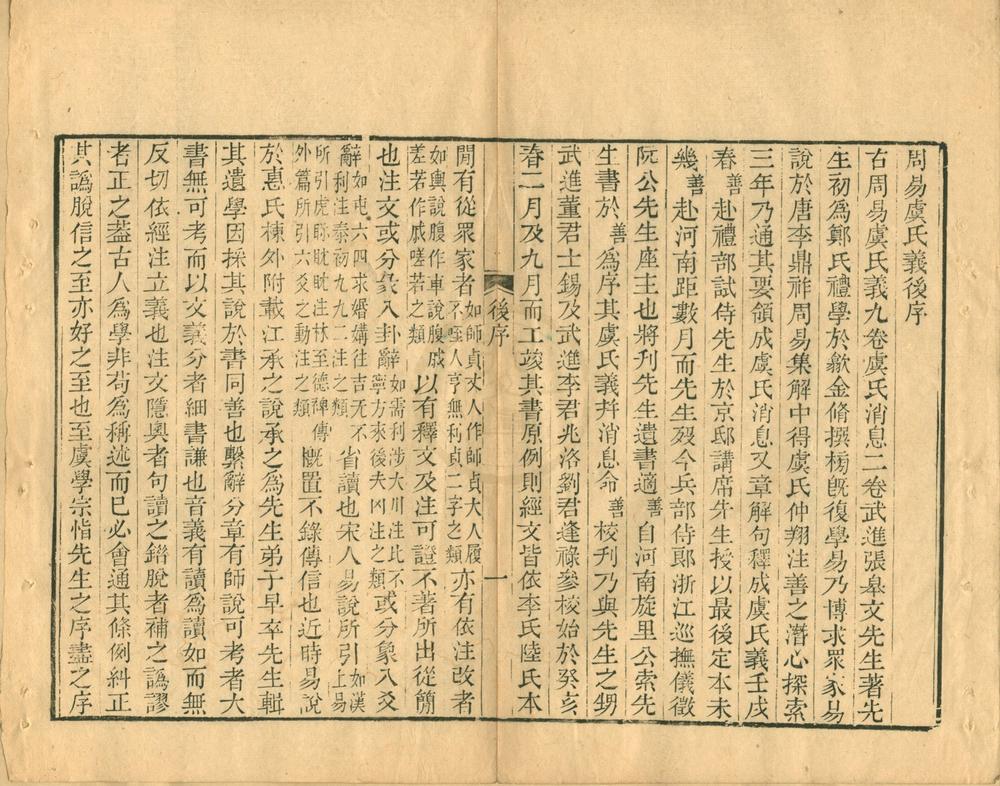 周易虞氏義後序
右周易虞氏義九卷虞氏消息二卷武進張皋文先生著先
生初爲鄭氏禮學於歙金脩撰榜旣復學易乃博求眾家易
說於唐李鼎祚周易集解中得虞氏仲翔注善之潛心探索
三年乃通其要領成虞氏消息又章解句釋成虞氏義壬戌
春善赴禮部試侍先生於京邸講席先生授以最後定本未
幾善赴河南距數月而先生歿今兵部侍郎浙江巡撫儀徵
阮公先生座主也將刊先生遺書適善自河南旋里公索先
生書於善爲序其虞氏義幷消息命善校刊乃與先生之甥
武進董君士錫及武進李君兆洛劉君逢祿參校始於癸亥
春二月及九月而工竣其書原例則經文皆依李氏陸氏本
後序
一
閒有從眾家者如師貞丈人作師貞大人履不咥人亨無利貞二字之類亦有依注改者
如輿說腹作車說腹戚差若作戚嗟若之類以有釋文及注可證不著所出從簡
也注文或分彖入卦辭如需利涉大川注比不寧方來後夫凶注之類或分象入爻
辭如屯六四求婚媾往吉无不利注泰初九九二注之類省讀也宋人易說所引如漢上易
所引虎眎眈眈注林至德裨傳外篇所引六爻之動注之類槪置不錄傳信也近時易說
於惠氏棟外附載江承之說承之爲先生弟子早卒先生輯
其遺學因採其說於書同善也繫辭分章有師說可考者大
書無可考而以文義分者細書謙也音義有讀爲讀如而無
反切依經注立義也注文隱奧者句讀之錯脫者補之譌謬
者正之葢古人爲學非苟爲稱述而巳必會通其條例糾正
其譌脫信之至亦好之至也至虞學宗恉先生之序盡之序